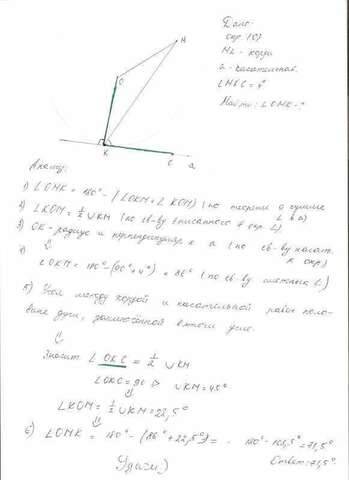 Дано:
окр (O)
MK - хорда
a - касательная.
∠MKC = 4°
Найти: ∠OMK - ?
M
O
K
C
a
Анализ:
1) ∠OMK = 180° - (∠OKM + ∠KOM) (по теореме о сумме
∠ в Δ)
2) ∠KOM = 1/2 ∪KM (по св-ву вписанного в окр. ∠)
3) OK - радиус и перпендикуляр к a (по св-ву касат.
к окр.)
4) ⇓
∠OKM = 180° - (90° + 4°) = 86° (по св-ву смежных ∠)
5) Угол между хордой и касательной равен поло-
вине дуги, заключённой внутри угла.
⇓
Значит ∠OKC = 1/2 ∪KM
∠OKC = 90° ⇒ ∪KM = 45°
⇓
∠KOM = 1/2 ∪KM = 22,5°
⇓
6) ∠OMK = 180° - (86° + 22,5°) = 180° - 108,5° = 71,5°
Ответ: 71,5°.
Удачи)